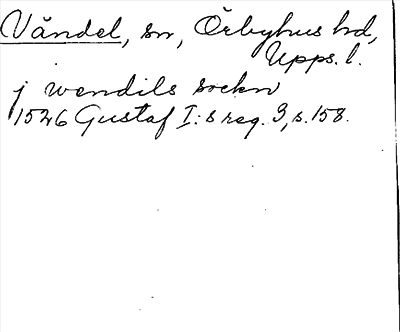 Vändel, sn, Örbyhus hd,
Upps. l.
j wendils sockn
1526 Gustaf I:s reg. 3, s. 158.